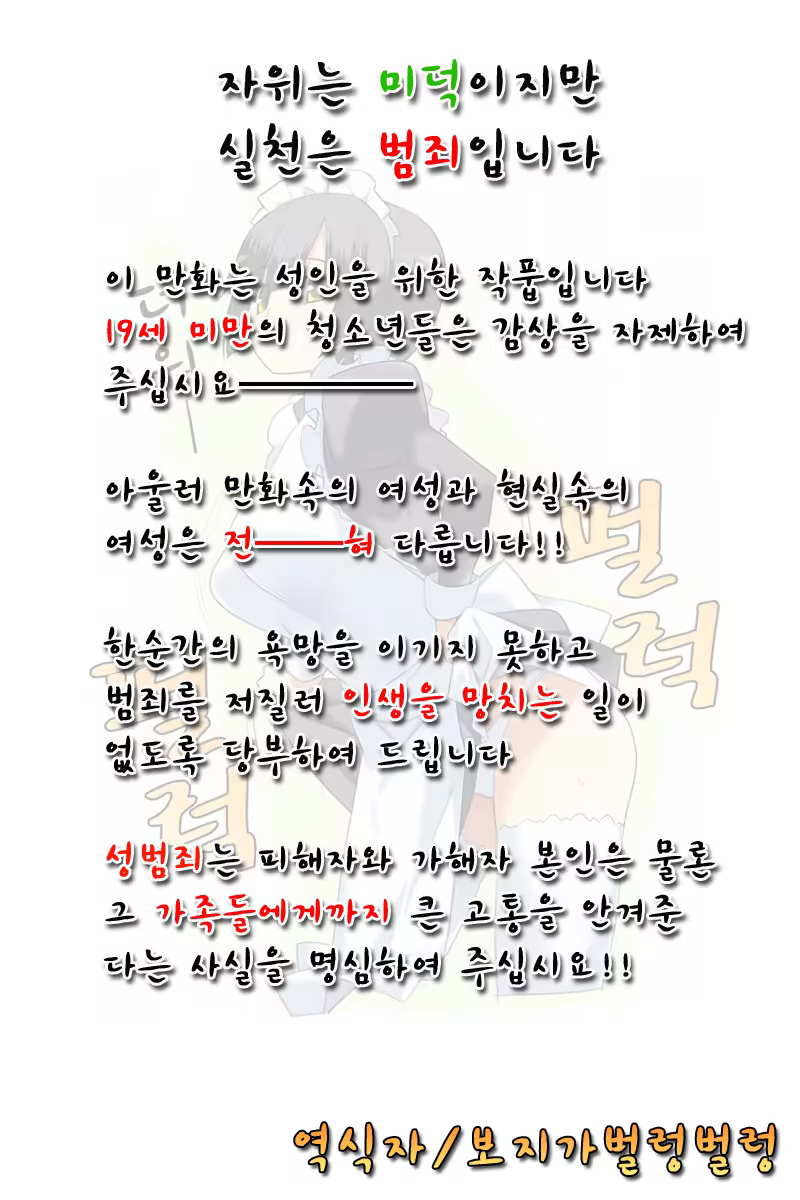 자위는 미덕이지만
실천은 범죄입니다
이 만화는 성인을 위한 작품입니다
19세 미만의 청소년들은 감상을 자제하여
주십시요─────
아울러 만화속의 여성과 현실속의
여성은 전───혀 다릅니다!!
한순간의 욕망을 이기지 못하고
범죄를 저질러 인생을 망치는 일이
없도록 당부하여 드립니다
성범죄는 피해자와 가해자 본인은 물론
그 가족들에게까지 큰 고통을 안겨준
다는 사실을 명심하여 주십시요!!
펄
럭
펄
럭
역식자/보지가벌렁벌렁